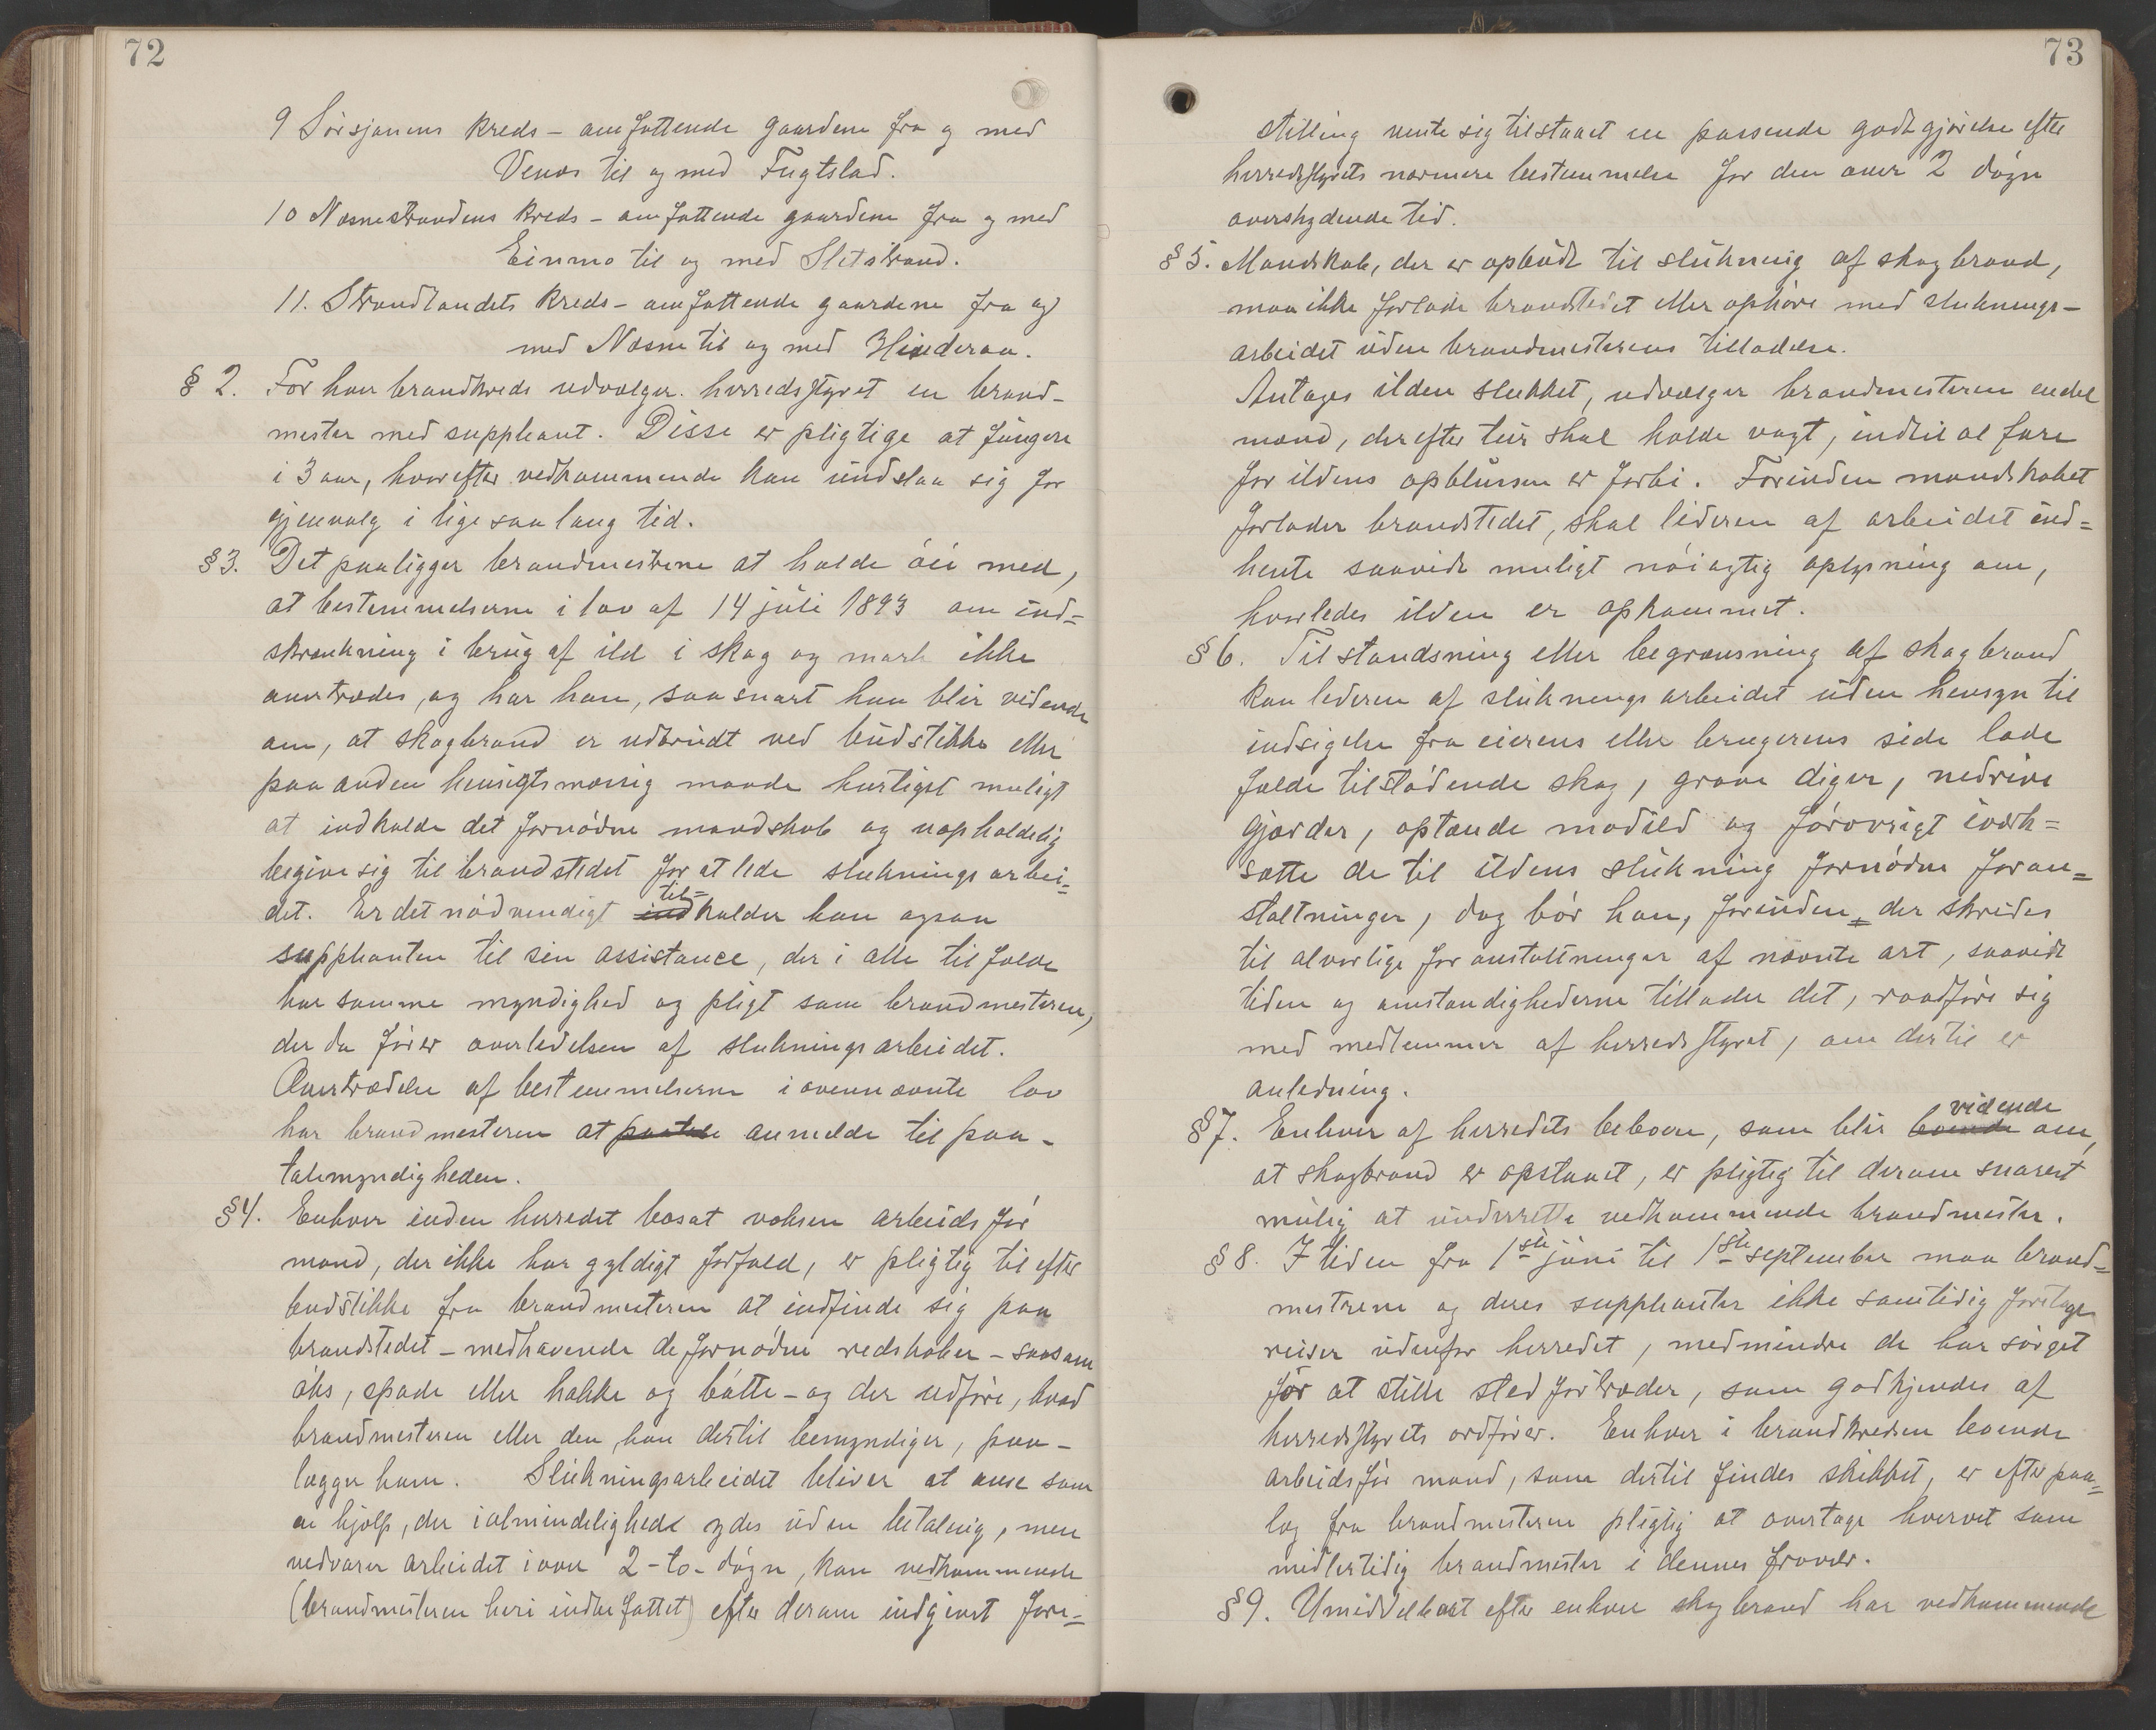 72
9 Sørsjonens kreds - omfattende gaardene fra og med
Venes til og med Fugtslad.
10 Nesnestrandens kreds - omfattende gaardene fra og med
Einmo til og med Sletstrand.
11. Strandlandets kreds - omfattende gaardene fra og
med Nesne til og med Hinderaa.
§ 2. For hver brandkreds udvælger herredsstyret en brand-
mester med suppleant. Disse er pligtige at fungere
i 3 aar, hvorefter vedkommende kan undslaa sig for
gjenvalg i lige saa lang tid.
§3. Det paaligger brandmestrene at holde øie med,
at bestemmelserne i lov af 14 juli 1893 om ind=
skrænkning i brug af ild i skog og mark ikke
overtrædes, og har han, saasnart han blir vidende
om, at skogbrand er udbrudt ved budstikke eller
paa anden hensigtsmæssig maade hurtigst muligt
at indkalde det fornødne mandskab og uopholdelig
begive sig til brandstedet for at lede sluknings arbei=
det. Er det nødvendigt ind til=kalder han ogsaa
suppleanten til sin assistance, der i alle tilfælde
har samme myndighed og pligt som brandmesteren,
der da fører overledelsen af slukningsarbeidet.
Overtrædelse af bestemmelserne i ovennævnte lov
har brandmesteren at paatale anmelde til paa-
talemyndigheden.
§4. Enhver inden herredet bosat voksen arbeidsfør
mand, der ikke har gyldigt forfald, er pligtig til efter
budstikke fra brandmesteren at indfinde sig paa
brandstedet - medhavende de fornødne redskaber - saasom
øks, spade eller hakke og bøtte - og der udføre, hvad
brandmesteren eller den, han dertil bemyndiger, paa-
lægger ham. Slukningsarbeidet bliver at anse som
en hjælp, der i almindelighed ydes uden betaling, men
vedvarer arbeidet i over 2 - to - døgn, kan vedkommende
(brandmesteren heri indbefattet) efter derom indgivet fore=
73
stilling vente sig tilstaaet en passende godtgjørelse efter
herredsstyrets nærmere bestemmelse for den over 2 døgn
overskydende tid.
§5. Mandskab, der er opbudt til slukning af skogbrand,
maa ikke forlade brandstedet eller ophøre med sluknings-
arbeidet uden brandmesterens tilladelse.
Antages ilden slukket, udvælger brandmesteren endel
mænd, der efter tur skal holde vagt, indtil al fare
for ildens opblussen er forbi. Forinden mandskabet
forlader brandstedet, skal lederen af arbeidet ind=
hente saavidt muligt nøiagtig oplysning om,
hvorledes ilden er opkommet.
§6. Til standsning eller begrænsning af skogbrand
kan lederen af slukningsarbeidet uden hensyn til
indsigelse fra eierens eller brugerens side lade
fælde tilstødende skog, grave diger, nedrive
gjærder, optænde modild og forøvrigt iværk=
sætte de til ildens slukning fornødne foran=
staltninger, dog bør han, forinden der skrides
til alvorlige foranstaltninger af nævnte art, saavidt
tiden og omstændighederne tillader det, raadføre sig
med medlemmer af herredsstyret, om dertil er
anledning.
§7. Enhver af herredets beboere, som blir boende vidende om,
at skogbrand er opstaaet, er pligtig til derom snarest
mulig at underrette vedkommende brandmester.
§8. I tiden fra 1ste juni til 1ste september maa brand=
mestrene og deres suppleanter ikke samtidig foretage
reiser udenfor herredet, medmindre de har sørget
for at stille stedfortræder, som godkjendes af
herredsstyrets ordfører. Enhver i brandkredsen boende
arbeidsfør mand, som dertil findes skikket, er efter paa=
læg fra brandmesteren pligtig at overtage hvervet som
midlertidig brandmester i dennes fravær.
§9. Umiddelbart efter enhver skogbrand har vedkommende